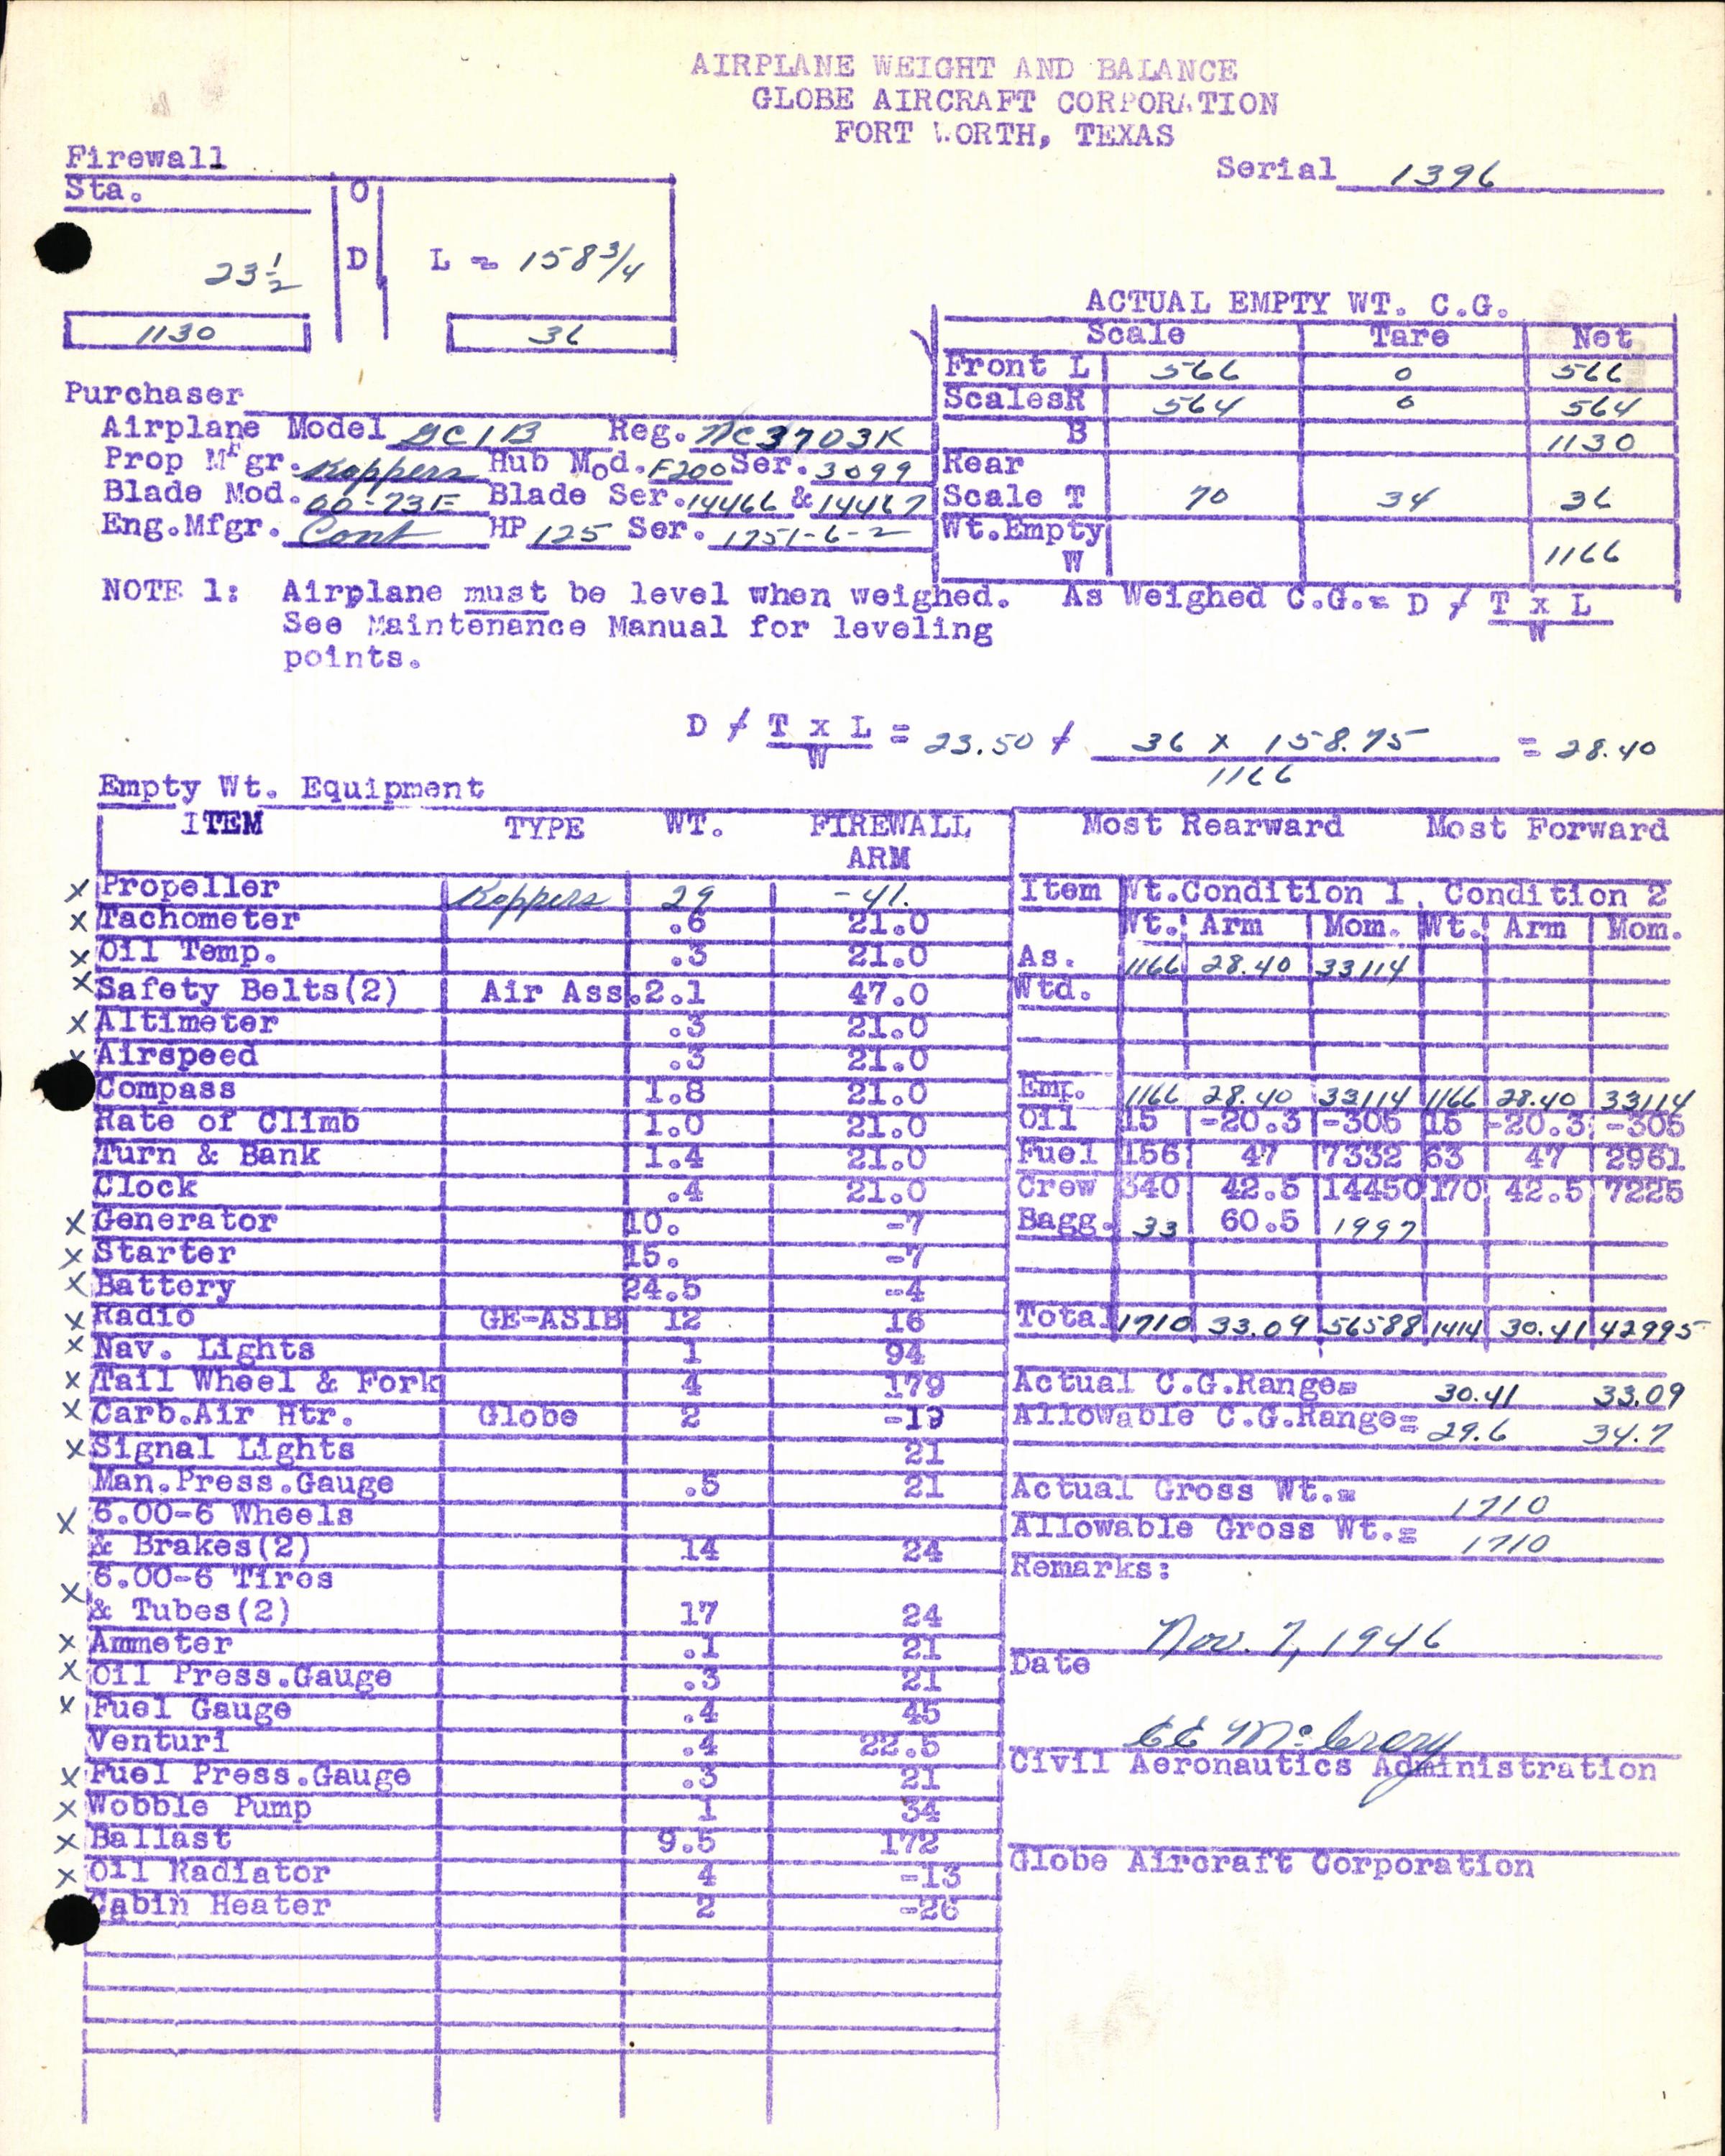 AIRPLANE WEIGHT AND BALANCE
GLOBE AIRCRAFT CORPORATION
FORT WORTH, TEXAS
Serial 1396
Firewall
Sta. O
23 1/2 D L = 158 3/4
1130 36
ACTUAL EMPTY WT. C.G.
Scale Tare Net
Front L 566 0 566
Scales R 564 0 564
B 1130
Rear
Scale T 70 34 36
Wt.Empty
W 1166
Purchaser
Airplane Model GC1B Reg. NC3703K
Prop Mfgr. Koppers Hub Mod. F200 Ser. 3099
Blade Mod. 00-73E Blade Ser. 14466 & 14467
Eng.Mfgr. Cont HP 125 Ser. 1751-6-2
NOTE 1: Airplane must be level when weighed. As Weighed C.G.= D / T x L
W
See Maintenance Manual for leveling
points.
D / T x L = 23.50 / 36 x 158.75 = 28.40
W 1166
Empty Wt. Equipment
ITEM TYPE WT. FIREWALL
ARM
Propeller Koppers 29 -41.
x Tachometer .6 21.0
x Oil Temp. .3 21.0
x Safety Belts(2) Air Ass. 2.1 47.0
x Altimeter .3 21.0
x Airspeed .3 21.0
Compass 1.8 21.0
Rate of Climb 1.0 21.0
Turn & Bank 1.4 21.0
Clock .4 21.0
x Generator 10. -7
x Starter 15. -7
x Battery 24.5 -4
x Radio GE-AS1B 12 16
x Nav. Lights 1 94
x Tail Wheel & Fork 4 179
x Carb.Air Htr. Globe 2 -19
x Signal Lights 21
Man.Press.Gauge .5 21
x 6.00-6 Wheels
& Brakes(2) 14 24
x 6.00-6 Tires
& Tubes(2) 17 24
x Ammeter .1 21
x Oil Press.Gauge .3 21
x Fuel Gauge .4 45
Venturi .4 22.5
x Fuel Press.Gauge .3 21
x Wobble Pump 1 34
x Ballast 9.5 172
x Oil Radiator 4 -13
Cabin Heater 2 -26
Most Rearward Most Forward
Item Wt.Condition 1, Condition 2
Wt. Arm Mom. Wt. Arm Mom.
As. 1166 28.40 33114
Wtd.
Emp. 1166 28.40 33114 1166 28.40 33114
Oil 15 -20.3 -305 15 -20.3 -305
Fuel 156 47 7332 63 47 2961
Crew 340 42.5 14450 170 42.5 7225
Bagg. 33 60.5 1997
Total 1710 33.09 56588 1414 30.41 42995
Actual C.G.Range= 30.41 33.09
Allowable C.G.Range= 29.6 34.7
Actual Gross Wt.= 1710
Allowable Gross Wt.= 1710
Remarks:
Nov. 7, 1946
Date
Civil Aeronautics Administration
Globe Aircraft Corporation